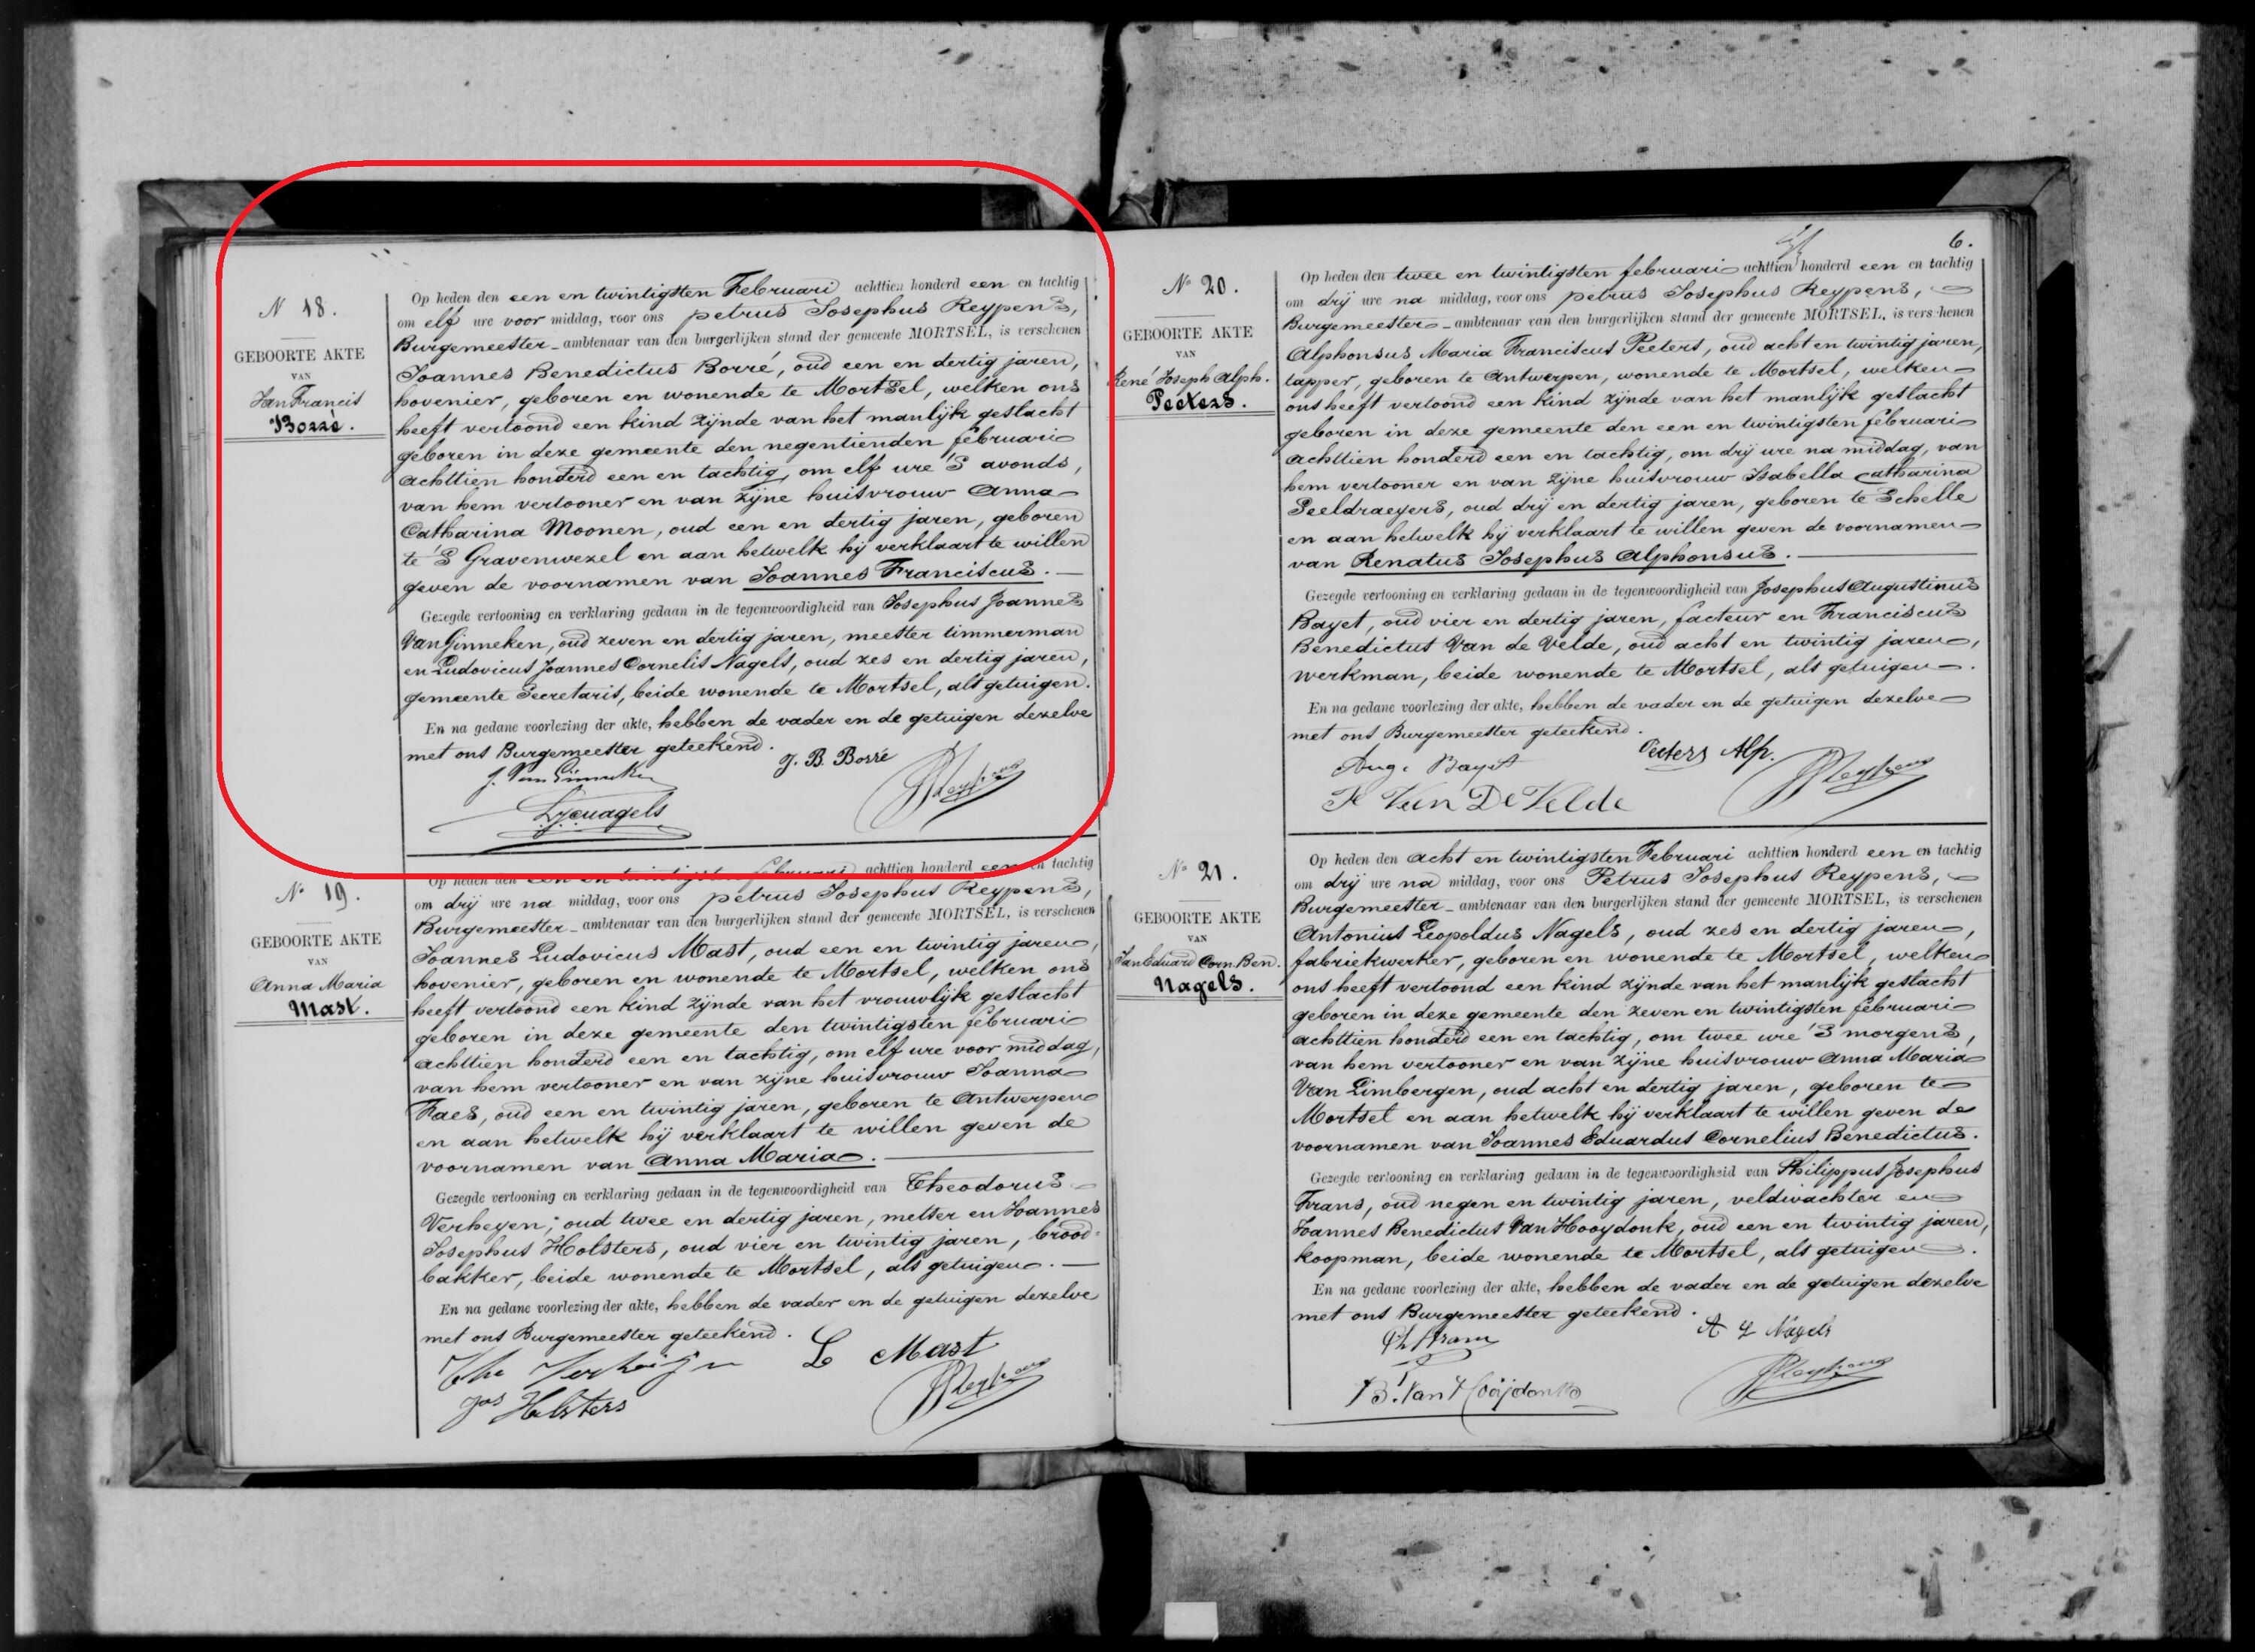 N 18.
GEBOORTE AKTE
VAN
Jan Francis
Borré.
Op heden den een en twintigsten Februari achttien honderd een en tachtig
om elf ure voor middag, voor ons petrus Josephus Reypens,
Burgemeester ambtenaar van den burgerlijken stand der gemeente MORTSEL, is verschenen
Joannes Benedictus Borré, oud een en dertig jaren,
hovenier, geboren en wonende te Mortsel, welken ons
heeft vertoond een kind zijnde van het manlijk geslacht
geboren in deze gemeente den negentienden februari
achttien honderd een en tachtig, om elf ure 's avonds,
van hem vertooner en van zijne huisvrouw Anna
Catharina Moonen, oud een en dertig jaren, geboren
te 's Gravenwezel en aan hetwelk hij verklaart te willen
geven de voornamen van Joannes Franciscus.
Gezegde vertooning en verklaring gedaan in de tegenwoordigheid van Josephus Joannes
Van Ginneken, oud zeven en dertig jaren, meester timmerman
en Ludovicus Joannes Cornelis Nagels, oud zes en dertig jaren,
gemeente Secretaris, beide wonende te Mortsel, als getuigen.
En na gedane voorlezing der akte, hebben de vader en de getuigen dezelve
met ons Burgemeester geteekend.
J. B. Borré
J. Van Ginneken
Nº 19.
GEBOORTE AKTE
VAN
Anna Maria
Mast.
Op heden den een en twintigsten februari achttien honderd een en tachtig
om drij ure na middag, voor ons petrus Josephus Reypens,
Burgemeester ambtenaar van den burgerlijken stand der gemeente MORTSEL, is verschenen
Joannes Ludovicus Mast, oud een en twintig jaren,
hovenier, geboren en wonende te Mortsel, welken ons
heeft vertoond een kind zijnde van het vrouwlijk geslacht
geboren in deze gemeente den twintigsten februari
achttien honderd een en tachtig, om elf ure voor middag,
van hem vertooner en van zijne huisvrouw Joanna
Faes, oud een en twintig jaren, geboren te Antwerpen
en aan hetwelk hij verklaart te willen geven de
voornamen van Anna Maria.
Gezegde vertooning en verklaring gedaan in de tegenwoordigheid van Theodorus
Verheyen, oud twee en dertig jaren, metser en Joannes
Josephus Holsters, oud vier en twintig jaren, brood-
bakker, beide wonende te Mortsel, als getuigen.
En na gedane voorlezing der akte, hebben de vader en de getuigen dezelve
met ons Burgemeester geteekend.
L Mast
Jos Holsters
6.
Nº 20.
GEBOORTE AKTE
VAN
René Joseph Alph.
Peeters.
Op heden den twee en twintigsten februari achttien honderd een en tachtig
om drij ure na middag, voor ons petrus Josephus Reypens,
Burgemeester ambtenaar van den burgerlijken stand der gemeente MORTSEL, is verschenen
Alphonsus Maria Franciscus Peeters, oud acht en twintig jaren,
tapper, geboren te Antwerpen, wonende te Mortsel, welken
ons heeft vertoond een kind zijnde van het manlijk geslacht
geboren in deze gemeente den een en twintigsten februari
achttien honderd een en tachtig, om drij ure na middag, van
hem vertooner en van zijne huisvrouw Isabella Catharina
Peeldraeyers, oud drij en dertig jaren, geboren te Schelle
en aan hetwelk hij verklaart te willen geven de voornamen
van Renatus Josephus Alphonsus.
Gezegde vertooning en verklaring gedaan in de tegenwoordigheid van Josephus Augustinus
Bayet, oud vier en dertig jaren, facteur en Franciscus
Benedictus Van de Velde, oud acht en twintig jaren,
werkman, beide wonende te Mortsel, als getuigen.
En na gedane voorlezing der akte, hebben de vader en de getuigen dezelve
met ons Burgemeester geteekend.
Peeters Alp.
Aug. Bayet
Van De Velde
Nº 21.
GEBOORTE AKTE
VAN
Jan Eduard Corn. Ben.
Nagels.
Op heden den acht en twintigsten Februari achttien honderd een en tachtig
om drij ure na middag, voor ons Petrus Josephus Reypens,
Burgemeester ambtenaar van den burgerlijken stand der gemeente MORTSEL, is verschenen
Antonius Leopoldus Nagels, oud zes en dertig jaren,
fabriekwerker, geboren en wonende te Mortsel, welken
ons heeft vertoond een kind zijnde van het manlijk geslacht
geboren in deze gemeente den zeven en twintigsten februari
achttien honderd een en tachtig, om twee ure 's morgens,
van hem vertooner en van zijne huisvrouw Anna Maria
Van Limbergen, oud acht en dertig jaren, geboren te
Mortsel en aan hetwelk hij verklaart te willen geven de
voornamen van Joannes Eduardus Cornelius Benedictus.
Gezegde vertooning en verklaring gedaan in de tegenwoordigheid van Philippus Josephus
Frans, oud negen en twintig jaren, veldwachter en
Joannes Benedictus Van Hooydonk, oud een en twintig jaren,
koopman, beide wonende te Mortsel, als getuigen.
En na gedane voorlezing der akte, hebben de vader en de getuigen dezelve
met ons Burgemeester geteekend.
A L Nagels
Ph Frans
B. Van Hooijdonk